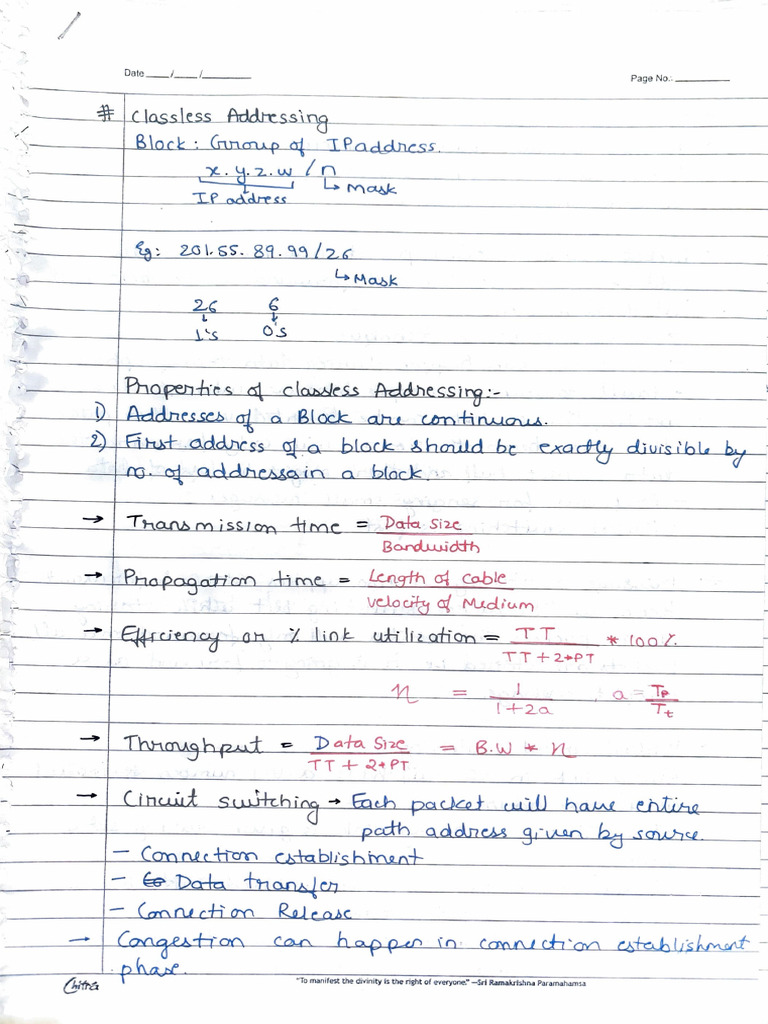 Date ___/___/_______
Page No.: _________
# Classless Addressing
Block : Group of IP address.
x. y. z. w / n
↳ Mask
IP address
Eg: 201.55. 89. 99/26
↳ Mask
26 6
↓ ↓
1's 0's
Properties of classless Addressing:-
1) Addresses of a Block are continuous.
2) First address of a block should be exactly divisible by
no. of addresses in a block.
→ Transmission time = Data Size
Bandwidth
→ Propagation time = Length of cable
velocity of Medium
→ Efficiency or % link utilization = TT * 100%
TT + 2*PT
η = 1 , a = Tp
1+2a Tt
→ Throughput = Data Size = B.W * η
TT + 2*PT
→ Circuit switching → Each packet will have entire
path address given by source.
– Connection establishment
– Data transfer
– Connection Release
→ Congestion can happen in connection establishment
phase.
Chitra
"To manifest the divinity is the right of everyone." —Sri Ramakrishna Paramahamsa